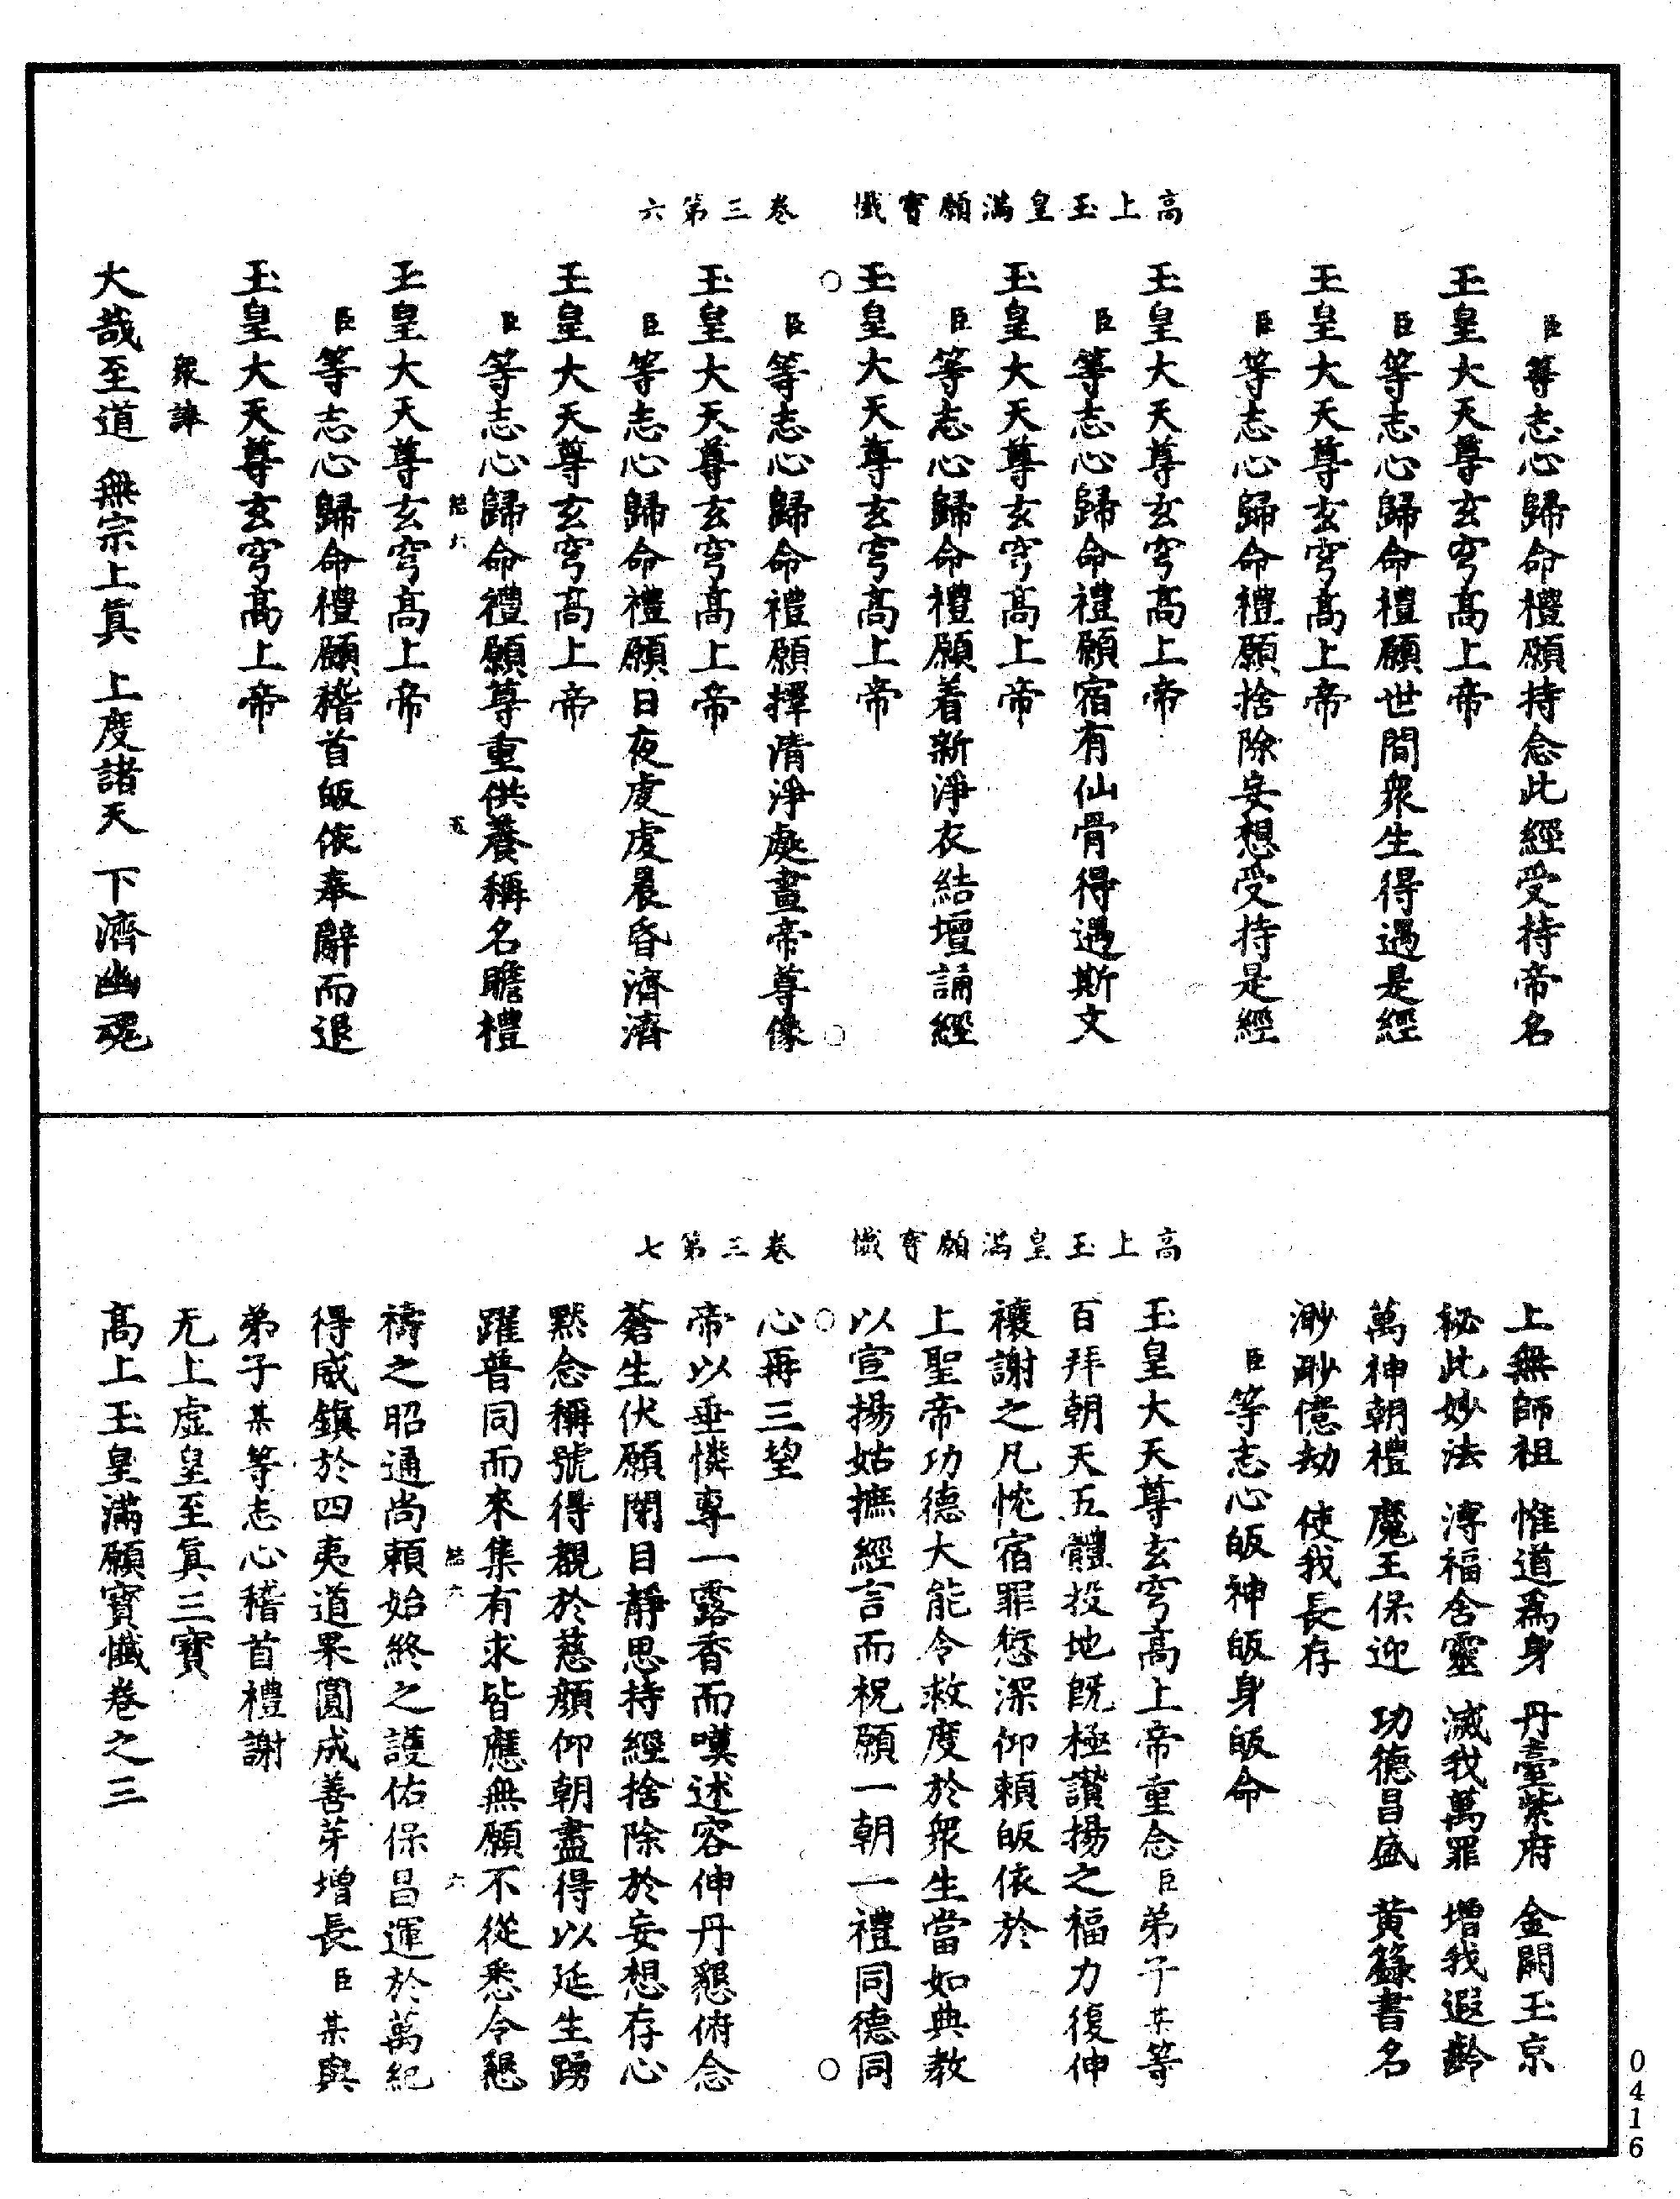 高上玉皇滿願寳懺　卷三第六
臣等志心歸命禮願持念此經受持帝名
玉皇大天尊玄穹髙上帝
臣等志心歸命禮願世間衆生得遇是經
玉皇大天尊玄穹髙上帝
臣等志心歸命禮願捨除妄想受持是經
玉皇大天尊玄穹髙上帝
臣等志心歸命禮願宿有仙骨得遇斯文
玉皇大天尊玄穹髙上帝
臣等志心歸命禮願着新淨衣結壇誦經
玉皇大天尊玄穹髙上帝
臣等志心歸命禮願擇清淨處畫帝尊像
玉皇大天尊玄穹髙上帝
臣等志心歸命禮願日夜虔虔晨昏濟濟
玉皇大天尊玄穹髙上帝
臣等志心歸命禮願尊重供養稱名瞻禮
結六　五
玉皇大天尊玄穹髙上帝
臣等志心歸命禮願稽首皈依奉辭而退
玉皇大天尊玄穹髙上帝
衆誦
大哉至道　無宗上真　上度諸天　下濟幽魂
高上玉皇滿願寳懺　卷三第七
上無師祖　惟道爲身　丹臺紫府　金闕玉京
祕此妙法　溥福含靈　滅我萬罪　增我遐齡
萬神朝禮　魔王保迎　功德昌盛　黃籙書名
渺渺億劫　使我長存
臣等志心皈神皈身皈命
玉皇大天尊玄穹高上帝重念臣弟子某等
百拜朝天五體投地旣極讚揚之福力復伸
禳謝之凡忱宿罪愆深仰頼皈依於
上聖帝功德大能令救度於衆生當如典教
以宣揚姑摭經言而祝願一朝一禮同德同
心再三望
帝以垂憐專一露香而嘆述容伸丹懇俯念
蒼生伏願閉目靜思持經捨除於妄想存心
黙念稱號得觀於慈顔仰朝盡得以延生踴
躍普同而來集有求皆應無願不從悉令懇
結六　六
禱之昭通尚頼始終之護佑保昌運於萬紀
得威鎮於四夷道果圓成善芽增長臣某與
弟子某等志心稽首禮謝
无上虛皇至真三寳
髙上玉皇滿願寳懺卷之三
0416